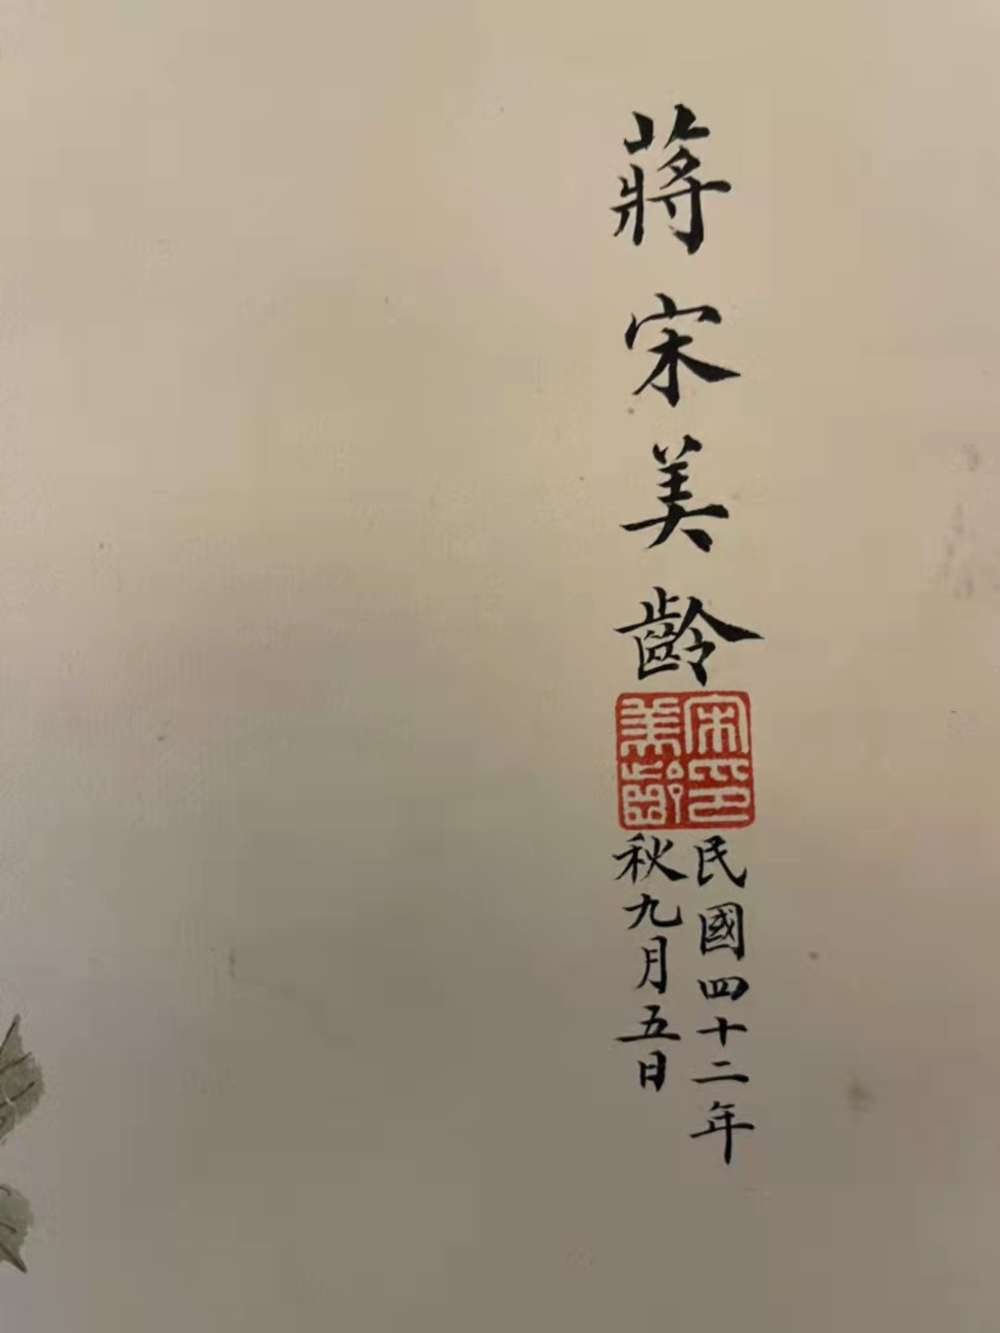 蔣宋美齡
宋美齡印
民國四十二年
秋九月五日